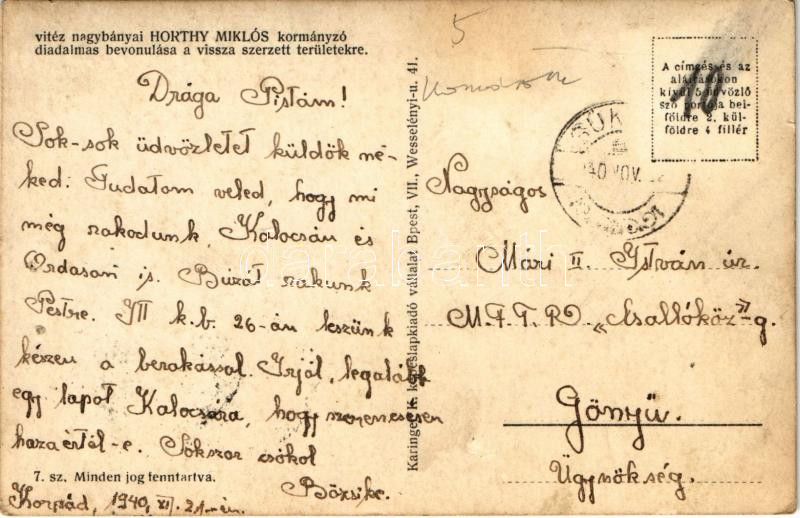 vitéz nagybányai HORTHY MIKLÓS kormányzó
diadalmas bevonulása a vissza szerzett területekre.
Drága Pistám!
Sok-sok üdvözletet küldök né-
ked. Tudatom veled, hogy mi
még rakodunk, Kalocsán és
Ordason is. Búzát rakunk
Pestre. XII k.b. 26-án leszünk
készen a berakással. Írjál, legalább
egy lapot Kalocsára, hogy szerencsésen
hazaértél-e. Sokszor csókol
Bözsike.
7. sz. Minden jog fenntartva.
1940. XI. 21-én.
Karinger K. képeslapkiadó vállalat Bpest, VII., Wesselényi-u. 41.
5
A címzés és az
aláírásokon
kívül 5 üdvözlő
szó portója bel-
földre 2, kül-
földre 4 fillér
10
Nagyságos
Mári II. István úr.
M.F.T.R. „Csallóköz"-g.
Gönyü.
Ügynökség.
darabanth